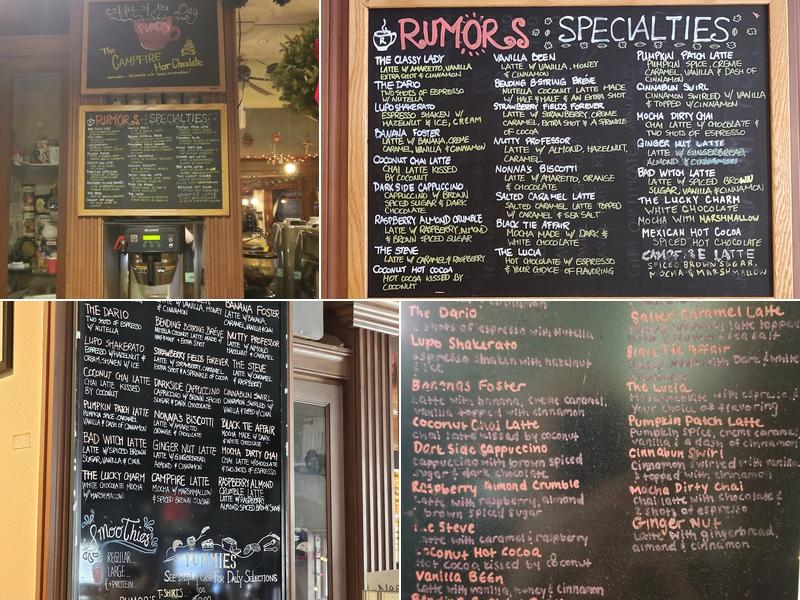 Coffee of the Day
Rumors
The
CAMPFIRE
Hot Chocolate
RUMORS SPECIALTIES
BUNN
RUMORS SPECIALTIES
THE CLASSY LADY
LATTE W/AMARETTO, VANILLA
EXTRA SHOT & CINNAMON
THE DARIO
TWO SHOTS OF ESPRESSO
W/ NUTELLA
LUPO SHAKERATO
ESPRESSO SHAKEN W/
HAZELNUT & ICE, CREAM
BANANA FOSTER
LATTE W/ BANANA, CREME
CARAMEL, VANILLA & CINNAMON
COCONUT CHAI LATTE
CHAI LATTE KISSED
BY COCONUT
DARKSIDE CAPPUCCINO
CAPPUCCINO W/ BROWN
SPICED SUGAR & DARK
CHOCOLATE
RASPBERRY ALMOND CRUMBLE
LATTE W/ RASPBERRY, ALMOND
& BROWN SPICED SUGAR
THE STEVE
LATTE W/ CARAMEL & RASPBERRY
COCONUT HOT COCOA
HOT COCOA KISSED BY
COCONUT
VANILLA BEEN
LATTE W/ VANILLA, HONEY
& CINNAMON
BENDING BISTRING BREVE
NUTELLA COCONUT LATTE MADE
W/ HALF & HALF & AN EXTRA SHOT
STRAWBERRY FIELDS FOREVER
LATTE W/ STRAWBERRY, CREME
CARAMEL, EXTRA SHOT & A SPRINKLE
OF COCOA
NUTTY PROFESSOR
LATTE W/ ALMOND, HAZELNUT,
CARAMEL
NONNA'S BISCOTTI
LATTE W/ AMARETTO, ORANGE
& CHOCOLATE
SALTED CARAMEL LATTE
SALTED CARAMEL LATTE TOPPED
W/ CARAMEL & SEA SALT
BLACK TIE AFFAIR
MOCHA MADE W/ DARK &
WHITE CHOCOLATE
THE LUCIA
HOT CHOCOLATE W/ ESPRESSO
& YOUR CHOICE OF FLAVORING
PUMPKIN PATCH LATTE
PUMPKIN SPICE, CREME
CARAMEL, VANILLA & DASH OF
CINNAMON
CINNABUN SWIRL
CINNAMON SWIRLED W/ VANILLA
& TOPPED W/CINNAMON
MOCHA DIRTY CHAI
CHAI LATTE W/ CHOCOLATE &
TWO SHOTS OF ESPRESSO
GINGER NUT LATTE
LATTE W/ GINGERBREAD,
ALMOND & CINNAMON
BAD WITCH LATTE
LATTE W/ SPICED BROWN
SUGAR, VANILLA & CINNAMON
THE LUCKY CHARM
WHITE CHOCOLATE
MOCHA WITH MARSHMALLOW
MEXICAN HOT COCOA
SPICED HOT CHOCOLATE
CAMPFIRE LATTE
SPICED BROWN SUGAR,
MOCHA & MARSHMALLOW
THE DARIO
TWO SHOTS OF ESPRESSO
W/ NUTELLA
LUPO SHAKERATO
ESPRESSO W/HAZELNUT &
CREAM, SHAKEN W/ ICE
COCONUT CHAI LATTE
CHAI LATTE KISSED
BY COCONUT
PUMPKIN PATCH LATTE
PUMPKIN SPICE, CARAMEL
VANILLA & DASH CINNAMON
BAD WITCH LATTE
LATTE W/SPICED BROWN
SUGAR, VANILLA & CINN.
THE LUCKY CHARM
WHITE CHOCOLATE MOCHA
W/ MARSHMALLOW
& CINNAMON
BENDING BISTRING BREVE
NUTELLA COCONUT LATTE MADE W/
HALF & HALF & EXTRA SHOT
STRAWBERRY FIELDS FOREVER
LATTE W/ STRAWBERRY, CARAMEL
EXTRA SHOT & A SPRINKLE OF COCOA
DARKSIDE CAPPUCCINO
CAPPUCCINO W/ BROWN SPICED
SUGAR & DARK CHOCOLATE
NONNA'S BISCOTTI
LATTE W/AMARETTO
ORANGE & CHOCOLATE
GINGER NUT LATTE
LATTE W/GINGERBREAD,
ALMOND & CINNAMON
CAMPFIRE LATTE
MOCHA W/MARSHMALLOW
& SPICED BROWN SUGAR
BANANA FOSTER
LATTE W/ BANANA,
CARAMEL, VANILLA & CINN
NUTTY PROFESSOR
LATTE W/ ALMOND
HAZELNUT & CARAMEL
THE STEVE
LATTE W/ CARAMEL
& RASPBERRY
CINNABUN SWIRL
CINNAMON SWIRLED W/
VANILLA & TOPPED W/CINN
BLACK TIE AFFAIR
MOCHA MADE W/ DARK
& WHITE CHOCOLATE
MOCHA DIRTY CHAI
CHAI LATTE W/CHOCOLATE
& TWO SHOTS OF ESPRESSO
RASPBERRY ALMOND
CRUMBLE LATTE
LATTE W/ RASPBERRY
ALMOND, SPICED BROWN SUGAR
Smoothies
REGULAR...
LARGE...
(+PROTEIN...
RUMOR'S T-SHIRTS
YUMMIES
SEE DISPLAY CASE FOR DAILY SELECTIONS
The Dario
2 shots of espresso with Nutella
Lupo Shakerato
espresso shaken with hazelnut
& ice
Bananas Foster
Latte with banana, creme caramel,
vanilla topped with cinnamon
Coconut Chai Latte
chai latte kissed by coconut
Dark Side Cappuccino
cappuccino with brown spiced
sugar & dark chocolate
Raspberry Almond Crumble
Latte with raspberry, almond
& brown spiced sugar
The Steve
Latte with caramel & raspberry
Coconut Hot Cocoa
Hot cocoa kissed by coconut
Vanilla Béén
Latte with vanilla, honey & cinnamon
Salted Caramel Latte
Black Tie Affair
made with Dark & white
The Lucia
with espresso &
your choice of flavoring
Pumpkin Patch Latte
Pumpkin Spice, creme caramel,
vanilla & a dash of cinnamon
Cinnabun Swirl
Cinnamon swirled with vanilla
& topped with cinnamon
Mocha Dirty Chai
Chai latte with chocolate &
2 shots of espresso
Ginger Nut
Latte with gingerbread,
almond & cinnamon